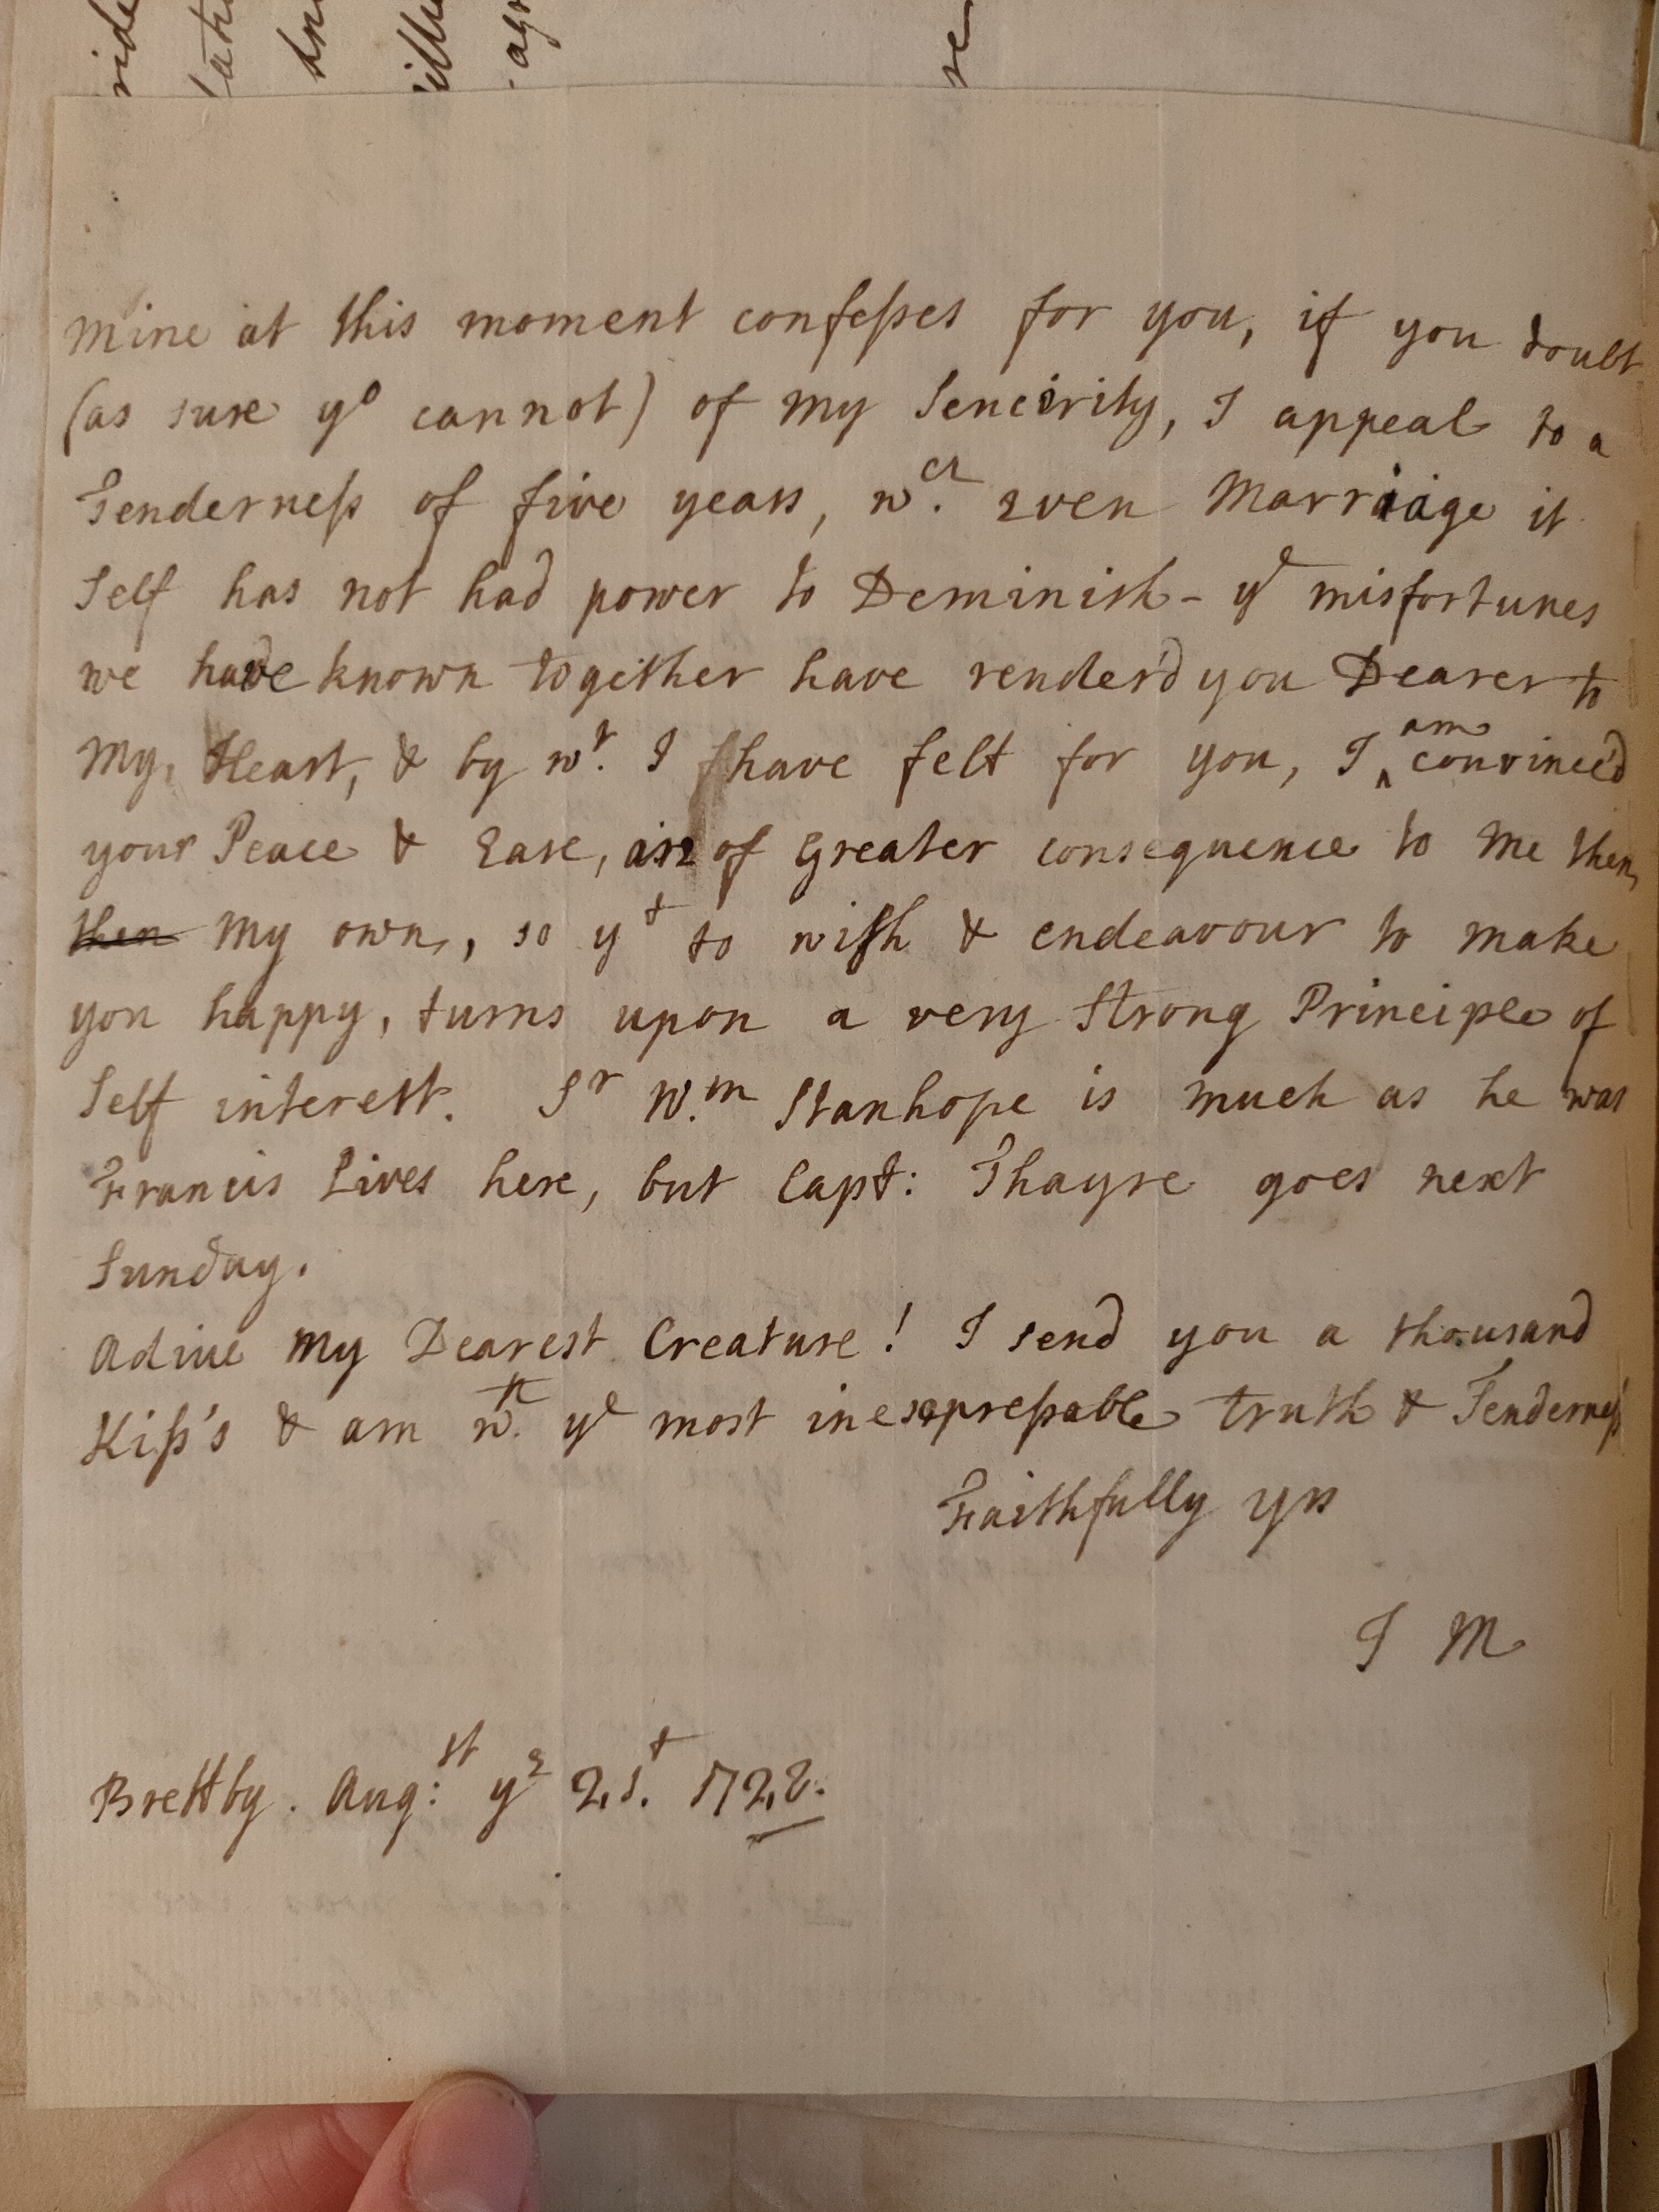 mine at this moment confesses for you, if you doubt
(as sure yo cannot) of my Sencirity, I appeal to a
Tenderness of five years, wch. even Marriage it
Self has not had power to Deminish - ye misfortunes
we have known together have render'd you Dearer to
My, Heart, & by wt. I have felt for you, I ^am convinced
your Peace & Ease, are of Greater consequence to me then
then My own, so yt to wish & endeavour to make
you happy, turns upon a very Strong Principle of
Self interest. Sr Wm. Stanhope is much as he was
Francis Lives here, but Capt: Thayre goes next
Sunday.
Adiue My Dearest Creature! I send you a thousand
Kiss's & am wth. ye most inexpressable truth & Tenderness
Faithfully yrs
I M
Brettby. Aug:st ye 21.t 1728.